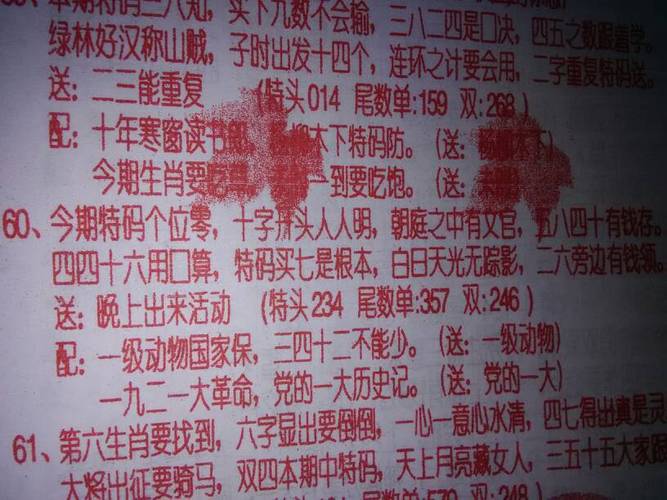 本期特码三八知，买下九数不会输，三八二四是囗决，四五之数跟着学。
绿林好汉称山贼，子时出发十四个，连环之计要会用，二字重复特码送。
送：二三能重复 （特头014 尾数单:159 双:268）
配：十年寒窗读书 木下特码防。（送：
今期生肖要 一到要吃饱。（送：
60、今期特码个位零，十字开头人人明，朝庭之中有文官，五八四十有钱存。
四四十六用囗算，特码买七是根本，白日天光无踪影，二六旁边有钱领。
送：晚上出来活动 （特头234 尾数单:357 双:246）
配：一级动物国家保，三四十二不能少。（送：一级动物）
一九二一大革命，党的一大历史记。（送：党的一大）
61、第六生肖要找到，六字显出要倒倒，一心一意心水清，四七得出真是灵
大将出征要骑马，双四本期中特码，天上月亮藏女人，三五十五大家